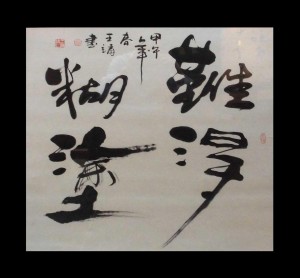 難得
糊塗
甲午
年
春
王
書